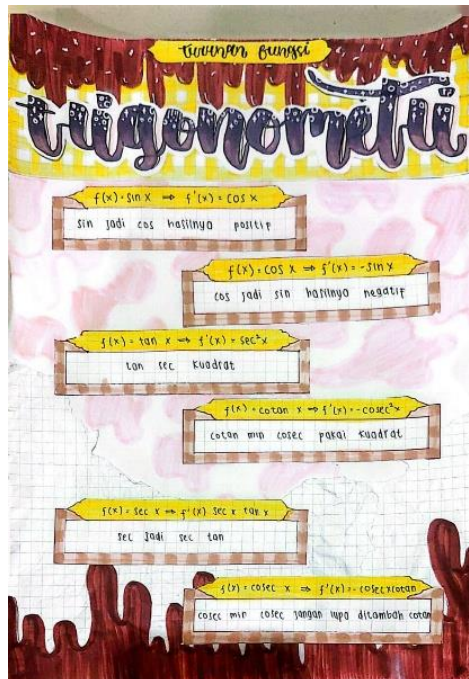 turunan fungsi
trigonometri
f(x) = sin x ⇒ f'(x) = cos x
sin jadi cos hasilnya positif
f(x) = cos x ⇒ f'(x) = -sin x
cos jadi sin hasilnya negatif
f(x) = tan x ⇒ f'(x) = sec²x
tan sec kuadrat
f(x) = cotan x ⇒ f'(x) = -cosec²x
cotan min cosec pakai kuadrat
f(x) = sec x ⇒ f'(x) sec x tan x
sec jadi sec tan
f(x) = cosec x ⇒ f'(x) = -cosec x cotan
cosec min cosec jangan lupa ditambah cotan